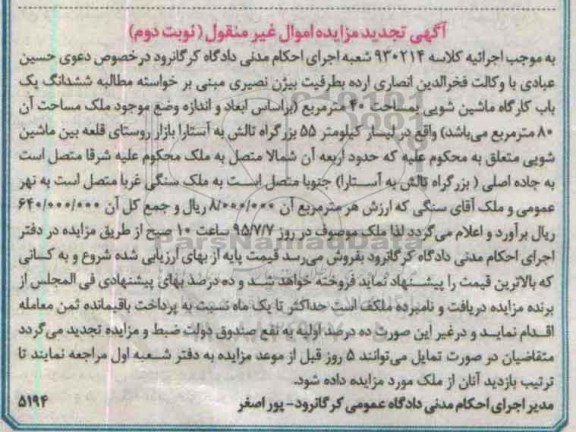 آگهی تجدید مزایده اموال غیر منقول (نوبت دوم)
به موجب اجرائیه کلاسه ۹۳۰۲۱۴ شعبه اجرای احکام مدنی دادگاه کرگانرود درخصوص دعوی حسین
عبادی با وکالت فخرالدین انصاری ارده بطرفیت بیژن نصیری مبنی بر خواسته مطالبه ششدانگ یک
باب کارگاه ماشین شویی بمساحت ۴۰ مترمربع (براساس ابعاد و اندازه وضع موجود ملک مساحت آن
۸۰ مترمربع می‌باشد) واقع در لیسار کیلومتر ۵۵ بزرگراه تالش به آستارا بازار روستای قلعه بین ماشین
شویی متعلق به محکوم علیه که حدود اربعه آن شمالا متصل به ملک محکوم علیه شرقا متصل است
به جاده اصلی ( بزرگراه تالش به آستارا) جنوبا متصل است به ملک سنگی غربا متصل است به نهر
عمومی و ملک آقای سنگی که ارزش هر مترمربع آن ۸/۰۰۰/۰۰۰ ریال و جمع کل آن ۶۴۰/۰۰۰/۰۰۰
ریال برآورد و اعلام می‌گردد لذا ملک موصوف در روز ۹۵/۷/۷ ساعت ۱۰ صبح از طریق مزایده در دفتر
اجرای احکام مدنی دادگاه کرگانرود بفروش می‌رسد قیمت پایه از بهای ارزیابی شده شروع و به کسانی
که بالاترین قیمت را پیشنهاد نماید فروخته خواهد شد و ده درصد بهای پیشنهادی فی المجلس از
برنده مزایده دریافت و نامبرده مکلف است حداکثر تا یک ماه نسبت به پرداخت باقیمانده ثمن معامله
اقدام نماید و درغیر این صورت ده درصد اولیه به نفع صندوق دولت ضبط و مزایده تجدید می‌گردد
متقاضیان در صورت تمایل می‌توانند ۵ روز قبل از موعد مزایده به دفتر شعبه اول مراجعه نمایند تا
ترتیب بازدید آنان از ملک مورد مزایده داده شود.
مدیر اجرای احکام مدنی دادگاه عمومی کرگانرود- پور اصغر ۵۱۹۴
ParsNamadData